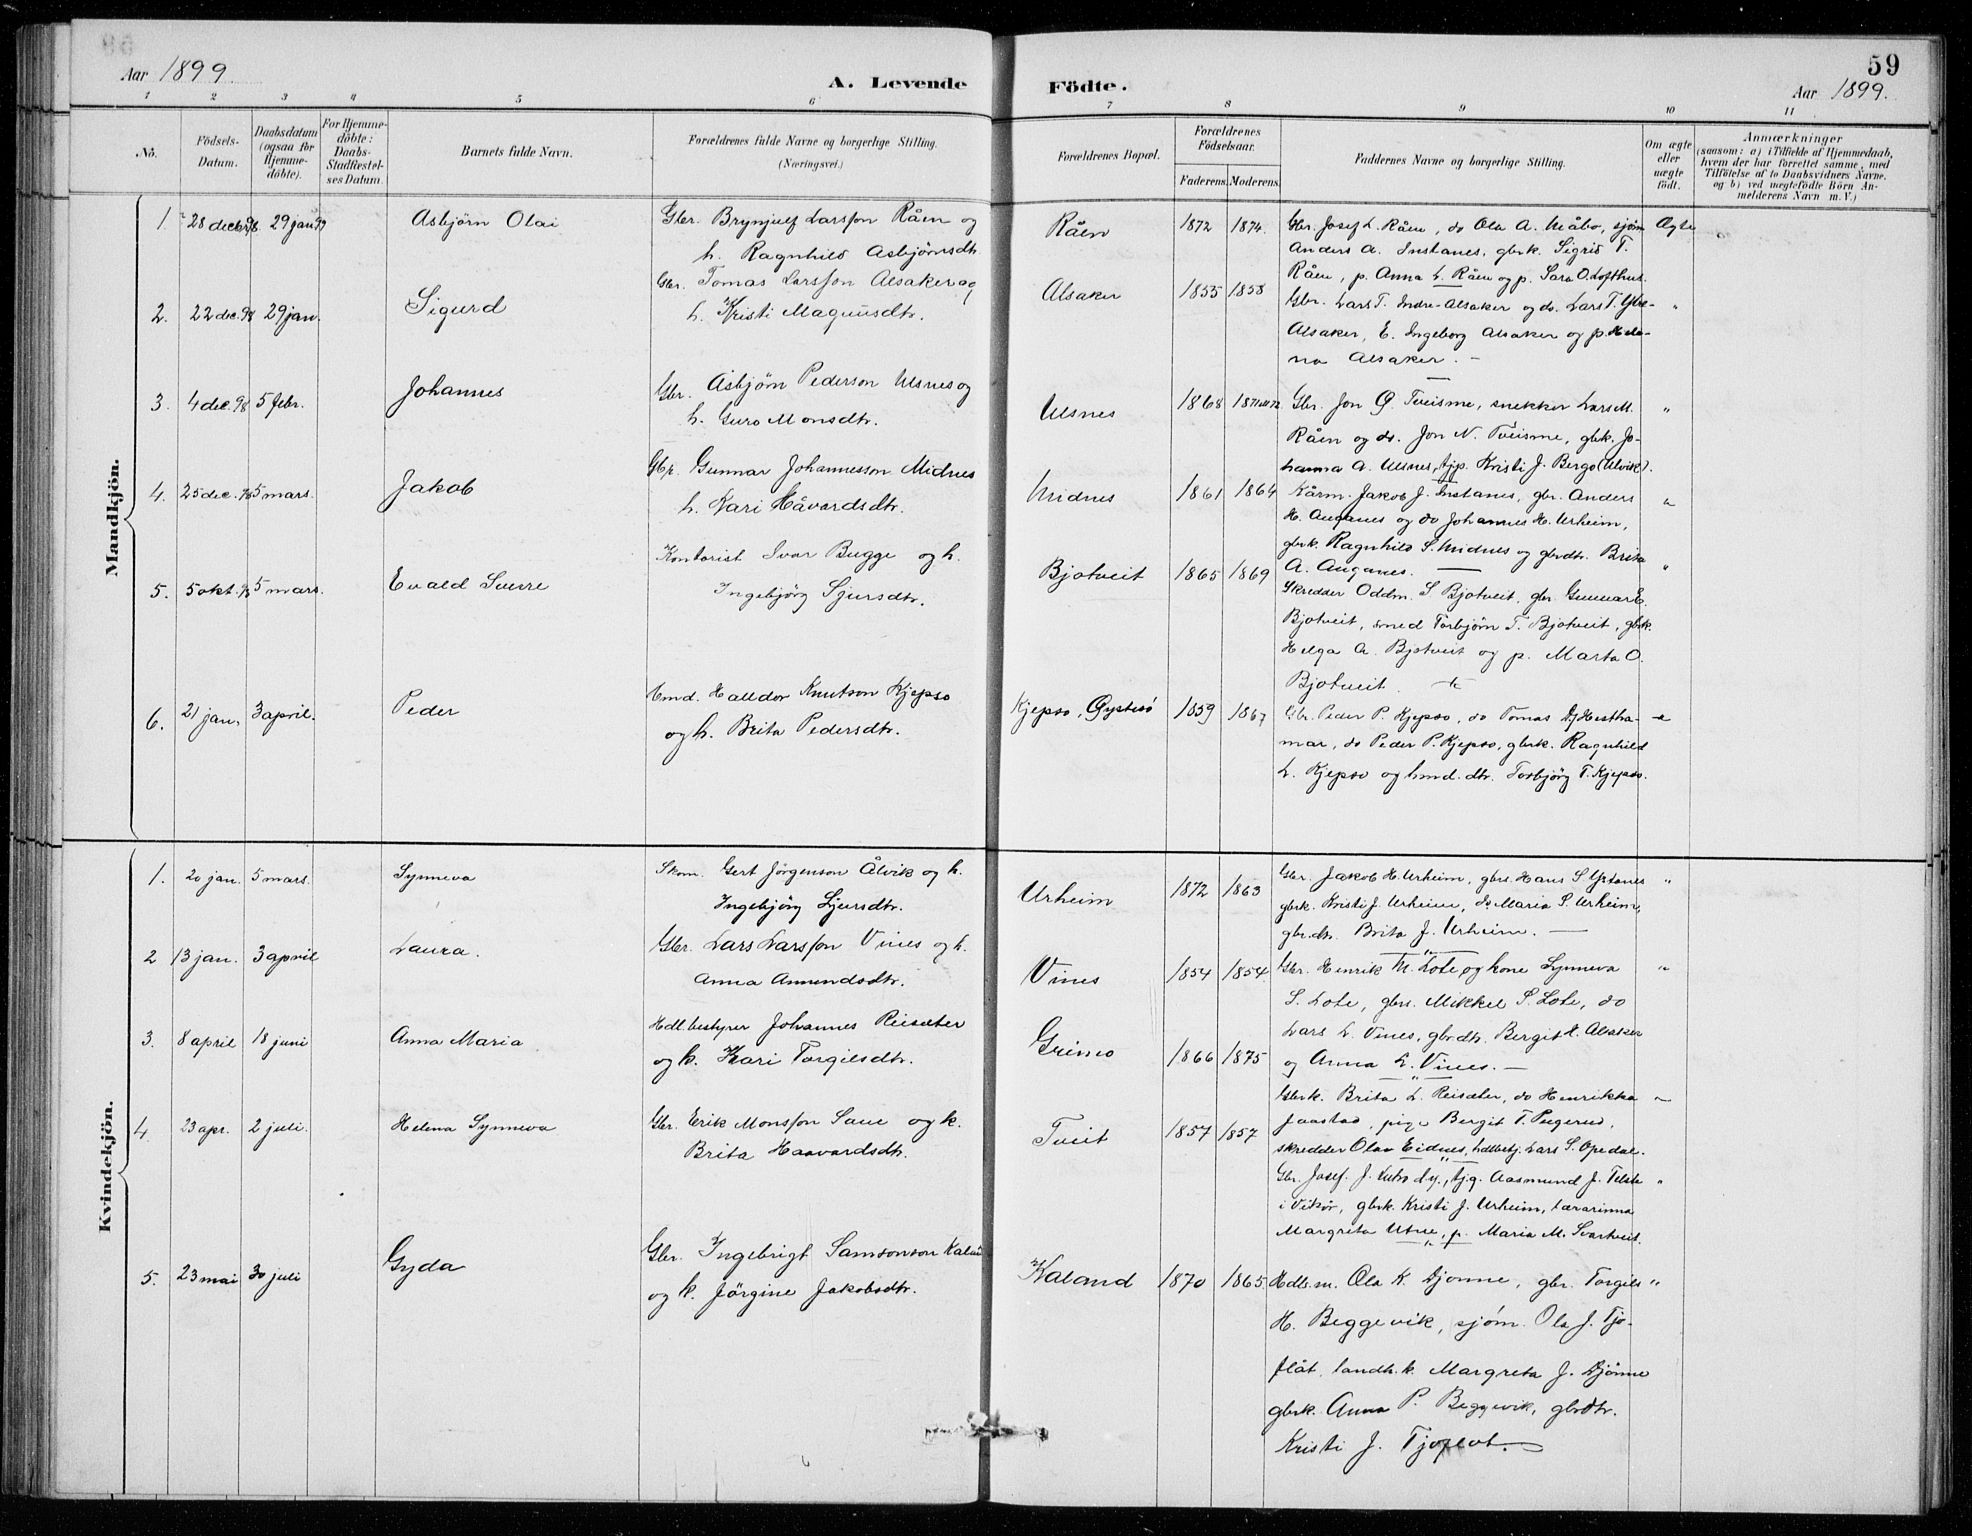 59
Aar 1899.
A. Levende Födte.
Aar 1899.
1 2 3 4 5 6 7 8 9 10 11
No.
Födsels-Datum.
Daabsdatum (ogsaa for Hjemme-döbte).
For Hjemme-döbte: Daabs-Stadfæstel-ses Datum.
Barnets fulde Navn.
Forældrenes fulde Navne og borgerlige Stilling. (Næringsvei.)
Forældrenes Bopæl.
Forældrenes Födselsaar.
Faderens. Moderens.
Faddernes Navne og borgerlige Stilling.
Om ægte eller uægte födt.
Anmærkninger
(saasom: a) i Tilfælde af Hjemmedaab,
hvem der har forrettet samme, med
Tilföielse af to Daabsvidners Navne.
og b) ved uægtefödte Börn An-
melderens Navn m. V.)
Mandkjön.
1. 28 decbr 98. 29 jan 99 Asbjörn Olai
Gbr. Brynjulf Larsson Råen og
h. Ragnhild Asbjörnsdtr.
Råen 1872 1874.
Gbr. Josef L. Råen, do Ola A. Måbø, sjöm
Anders A. Instanes, gbrk. Sigrid T.
Råen, p. Anna L. Råen og p. Sara O. Lofthus.
Ægte
2. 22 dec. 98 29 jan. Sigurd
Gbr. Tomas Larsson Alsaker og
h. Kristi Magnusdtr.
Alsaker 1855 1858
Gbr. Lars T. Indre-Alsaker og do. Lars T. Ytre-
Alsaker, E. Ingeborg Alsaker og p. Hele-
na Alsaker. —
"
3. 4 dec. 98 5 febr. Johannes
Gbr. Asbjörn Pederson Ulsnes og
h. Guro Monsdtr.
Ulsnes 1868
Gbr. Jon G. Tveisme, snekker Lars M.
Råen og do. Jon N. Tveisme, gbrk. Jo-
hanna A. Ulsnes, tjp. Kristi J. Bergo (Ulvik).
"
4. 25 dec. 98 5 mars. Jakob
Gbr. Gunnar Johannesson Midnes
h. Kari Håvardsdtr.
Midnes 1861 1864
Kårm. Jakob J. Instanes, gbr. Anders
H. Auganes og do Johannes H. Urheim,
gbrk. Ragnhild S. Midnes og gbrdtr. Brita
A. Auganes. —
"
5. 5 okt. 98 5 mars. Evald Sverre
Kontorist Ivar Bugge og h.
Ingebjörg Sjursdtr.
Bjotveit 1865 1869
Skredder Oddm. S. Bjotveit, gbr. Gunnar E.
Bjotveit, smed Torbjörn T. Bjotveit, gbrk.
Helga A. Bjotveit og p. Marta O.
Bjotveit.
"
6. 21 jan. 3 april. Peder
Hmd. Halldor Knutson Kjepso
og h. Brita Pedersdtr.
Kjepso, Øystesö 1859 1867
Gbr. Peder P. Kjepso, do Tomas Hestha-
mar, do Peder P. Kjepso, gbrk. Ragnhild
L. Kjepso og hmd. dtr. Torbjörg T. Kjepso.
Kvindekjön.
1. 20 jan. 5 mars. Synneva
Skom. Gert Jörgenson Ålvik og h.
Ingebjörg Sjursdtr.
Urheim 1872 1863
Gbr. Jakob H. Urheim, gbrs. Hans S. Ystanes
gbrk. Kristi J. Urheim, do Maria S. Urheim,
gbr.dtr. Brita J. Urheim. —
"
2 13 jan. 3 april Laura.
Gbr. Lars Larsson Vines og h.
Anna Amundsdtr.
Vines 1854 1854.
Gbr. Henrik M. Lote og kone Synneva
S. Lote, gbrs. Mikkel S. Lote, do
Lars L. Vines, gbrdtr. Bergit H. Alsaker
og Anna L. Vines. —
"
3. 8 april 18 juni Anna Maria
Hdl.bestyrer Johannes Reisæter
og k. Kari Torgilsdtr.
Grimo 1866 1875
Gbrk. Brita L. Reisæter, do Henrikka
Jaastad, pige Bergit T.
skredder Olav Eidnes, hdlbetj. Lars S. Opedal.
4. 23 apr. 2 juli. Helena Synneva
Gbr. Erik Monsson Saue og k.
Brita Haavardsdtr.
Tveit 1857 1857
Gbr. Josef J. Lutro d.y., tjg. Aasmund J. Telste
i Vikör, gbrk. Kristi J. Urheim, lærarinna
Margreta Utne, p. Maria M. Svartveit.
"
5. 23 mai 30 juli Gyda
Gbr. Ingebrigt Samsonson Kaland
og k. Jörgine Jakobsdtr.
Kaland 1870 1865
Hdls.m. Ola K. Djonne, gbr. Torgils
H. Beggevik, sjöm. Ola J. Tjo-
flåt, landh.k. Margreta J. Djönne
gbrk. Anna P. Beggevik, gbrdtr.
Kristi J. Tjoflot.
"